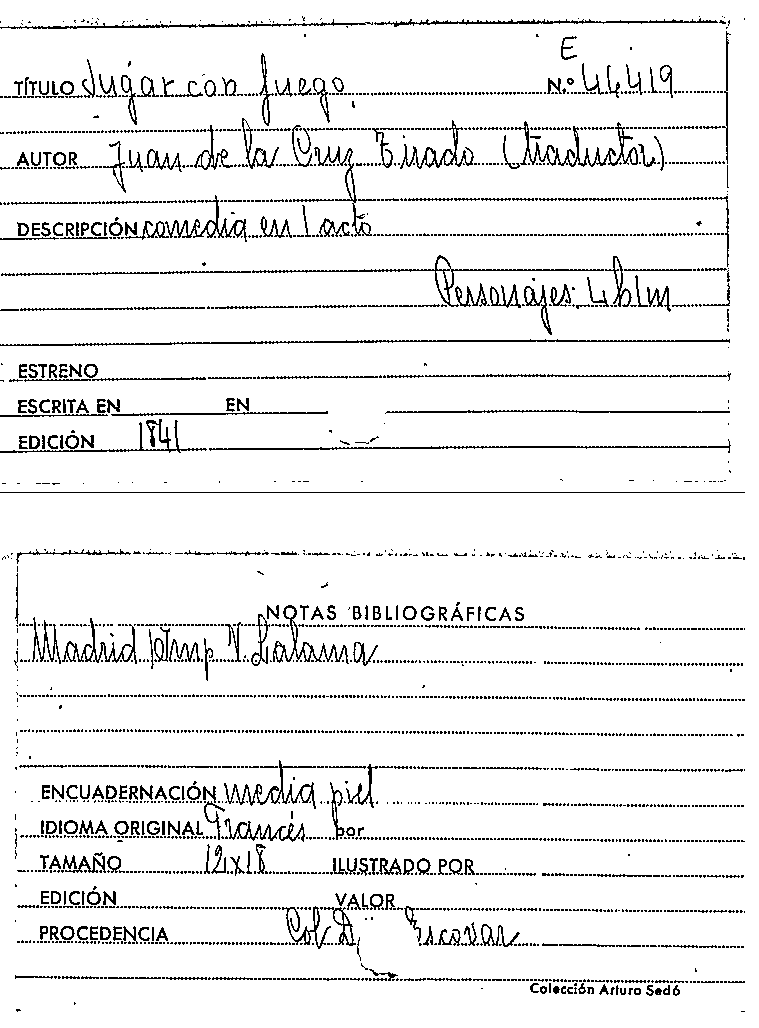 E
TÍTULO Jugar con fuego. N.º 44419
AUTOR Juan de la Cruz Tirado (traductor)
DESCRIPCIÓN comedia en 1 acto
Personajes: 4 h 1 m
ESTRENO
ESCRITA EN EN
EDICIÓN 1841
NOTAS BIBLIOGRÁFICAS
Madrid Imp V. Lalama
ENCUADERNACIÓN media piel
IDIOMA ORIGINAL Francés por
TAMAÑO 12x18 ILUSTRADO POR
EDICIÓN VALOR
PROCEDENCIA Col. Escovar
Colección Arturo Sedó